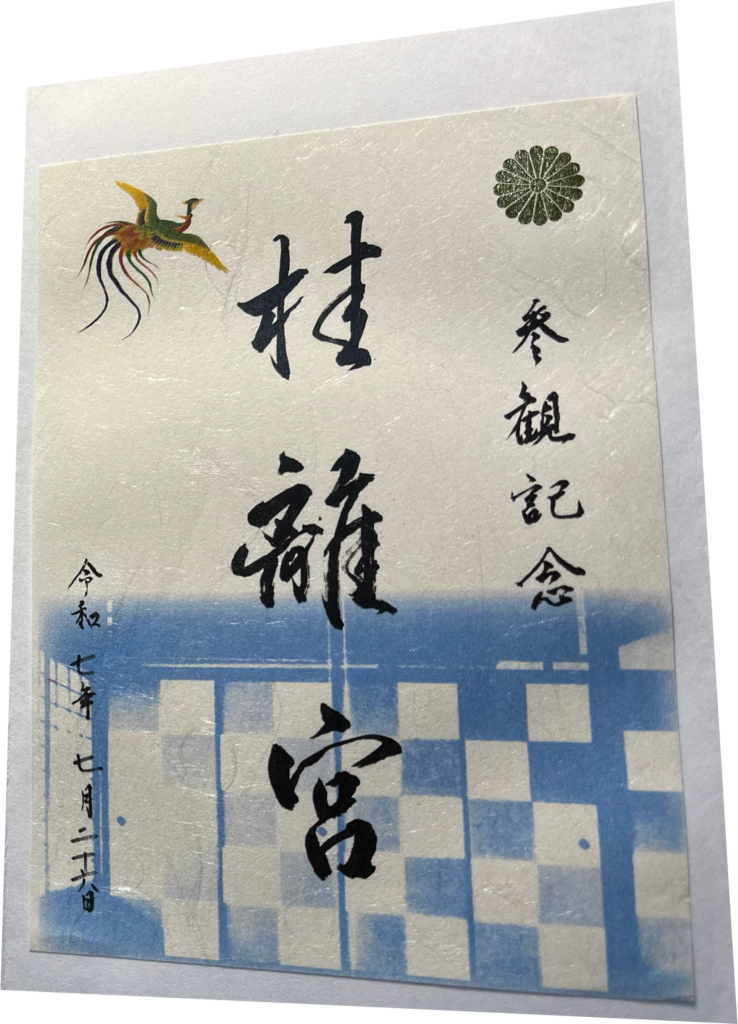 参観記念
桂離宮
令和七年七月二十六日